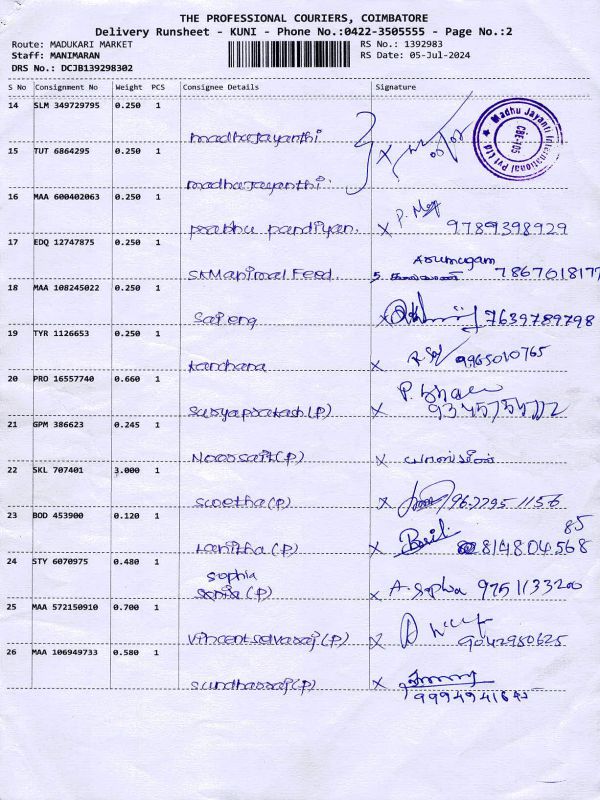 THE PROFESSIONAL COURIERS, COIMBATORE
Delivery Runsheet - KUNI - Phone No.:0422-3505555 - Page No.:2
Route: MADUKARI MARKET RS No.: 1392983
Staff: MANIMARAN RS Date: 05-Jul-2024
DRS No.: DCJB139298302
S No Consignment No Weight PCS Consignee Details Signature
14 SLM 349729795 0.250 1
madhajayanthi
Madhu Jayanti International Pvt Ltd CBE-105
15 TUT 6864295 0.250 1
madhajayanthi
16 MAA 600402063 0.250 1
prabhu pandiyan. X 9789398929
17 EDQ 12747875 0.250 1
Arumugam
SKM animal Feed. 7867018177
18 MAA 108245022 0.250 1
X 7639789798
19 TYR 1126653 0.250 1
kanchana X 9965010765
20 PRO 16557740 0.660 1
Suryaprakash (P) X
21 GPM 386623 0.245 1
(P) X
22 SKL 707401 3.000 1
Swetha (P) X
23 BOD 453900 0.120 1
85
Lanitha (P) X 814804568
24 STY 6070975 0.480 1
Sophia
(P) X A. Sophia 9751133200
25 MAA 572150910 0.700 1
Vincent selvaraj (P) X 9042980625
26 MAA 106949733 0.580 1
Sundharraj (P) X